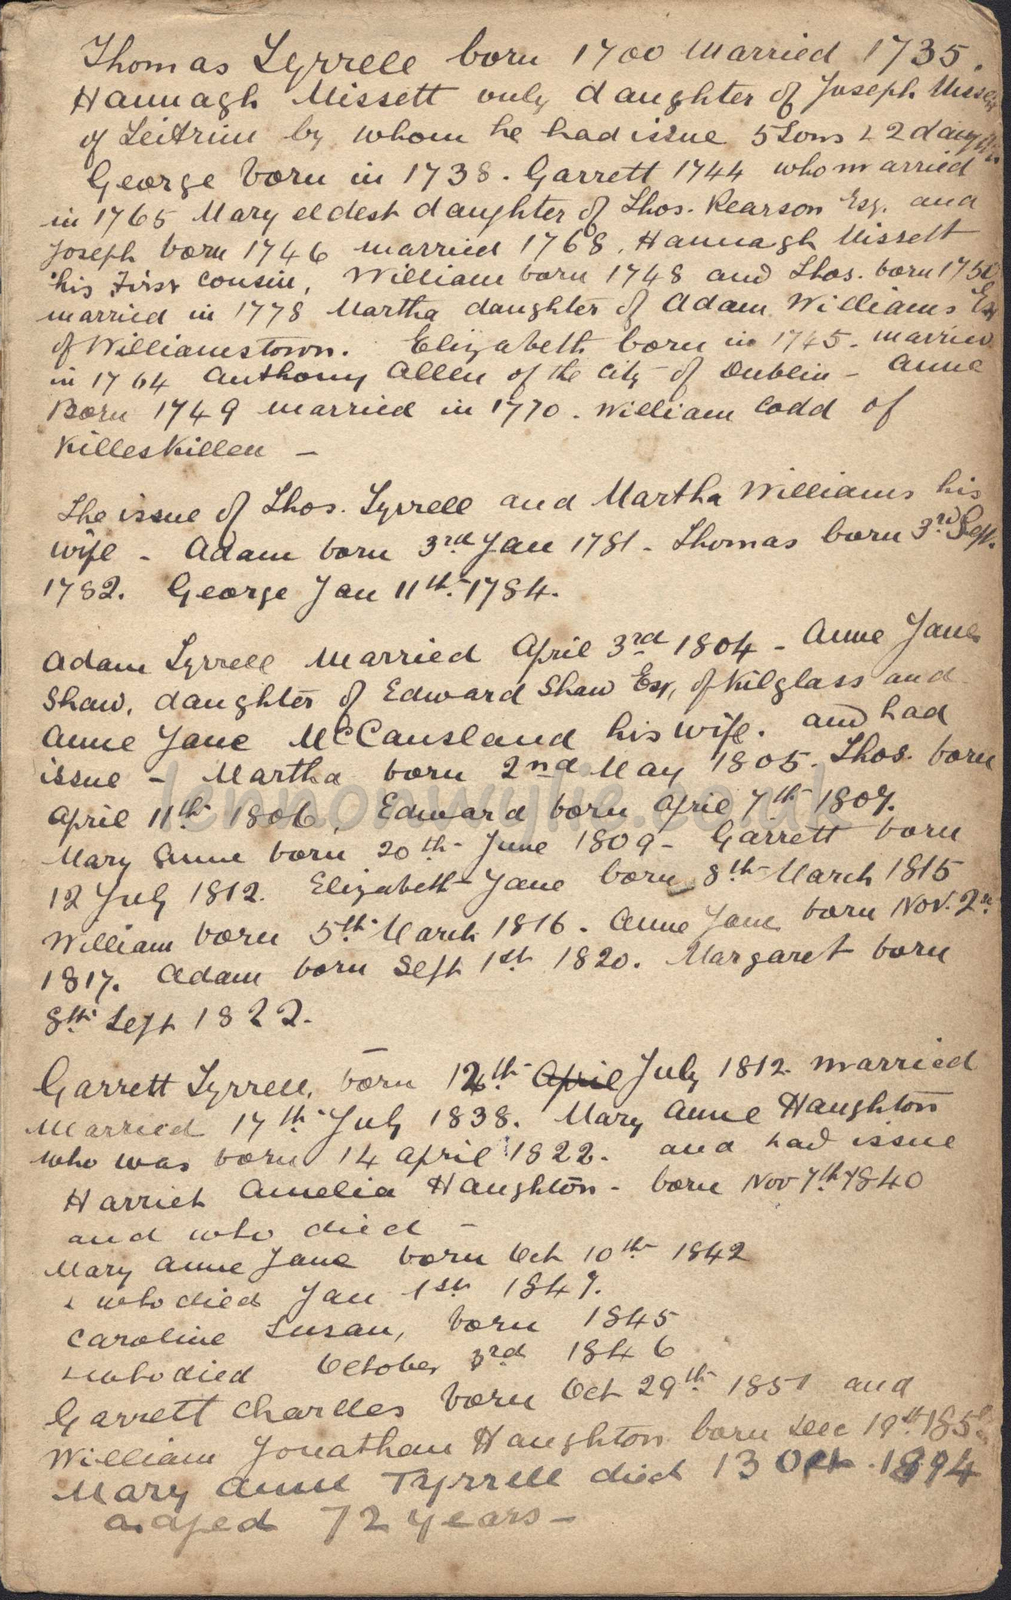 Thomas Tyrrell born 1700 married 1735.
Hannagh Missett only daughter of Joseph Missett
of Leitrim by whom he had issue 5 Sons & 2 daugh
George born in 1738. Garrett 1744 who married
in 1765 Mary eldest daughter of Thos. Pearson Esq. and
Joseph born 1746 married 1768. Hannagh Missett
his First cousin, William born 1748 and Thos. born 1750
married in 1778 Martha daughter of Adam Williams Esq
of Williamstown. Elizabeth born in 1745. married
in 1764 Anthony Allen of the City of Dublin - Anne
Born 1749 married in 1770. William Codd of
Killeskillen -
The issue of Thos. Tyrrell and Martha Williams his
wife - Adam born 3rd Jan 1781 - Thomas born 3rd Sept.
1782. George Jan 11th 1784.
Adam Tyrrell Married April 3rd 1804 - Anne Jane
Shaw, daughter of Edward Shaw Esq, of Kilglass and
Anne Jane McCausland his wife. and had
issue - Martha born 2nd May 1805. Thos. born
April 11th 1806. Edward born April 7th 1807.
Mary Anne born 20th June 1809 - Garrett born
12 July 1812. Elizabeth Jane born 8th March 1815
William born 5th March 1816. Anne Jane born Nov. 2nd
1817. Adam born Sept 1st 1820. Margaret born
8th Sept 1822.
Garrett Tyrrell, born 12th April July 1812 married
Married 17th July 1838. Mary Anne Haughton
who was born 14 April 1822. and had issue
Harriet Amelia Haughton - born Nov 7th 1840
and who died -
Mary Anne Jane born Oct 10th 1842
& who died Jan 1st 1847.
Caroline Susan, born 1845
& who died October 3rd 1846
Garrett Charles born Oct 29th 1851 and
William Jonathan Haughton born Dec 19th
Mary Anne Tyrrell died 13 Oct. 1894
aged 72 years -
lennonwylie.co.uk